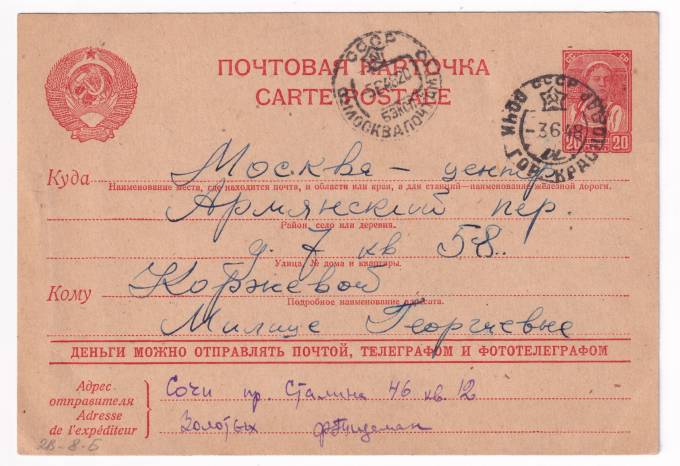 ПОЧТОВАЯ КАРТОЧКА
CARTE POSTALE
СССР
МОСКВА ПОЧТАМТ
СОЧИ СССР
-3.6.48
20 20
Куда Москва – центр
Наименование места, где находится почта, и области или края, а для станций—наименование железной дороги.
Армянский пер.
Район, село или деревня.
д. 7 кв 58.
Улица, № дома и квартиры.
Кому Коржевой
Подробное наименование адресата.
Милице Георгиевне
ДЕНЬГИ МОЖНО ОТПРАВЛЯТЬ ПОЧТОЙ, ТЕЛЕГРАФОМ И ФОТОТЕЛЕГРАФОМ
Адрес отправителя
Adresse de l'expéditeur
Сочи пр. Сталина 46 кв. 12
Золотых
2В-8-Б